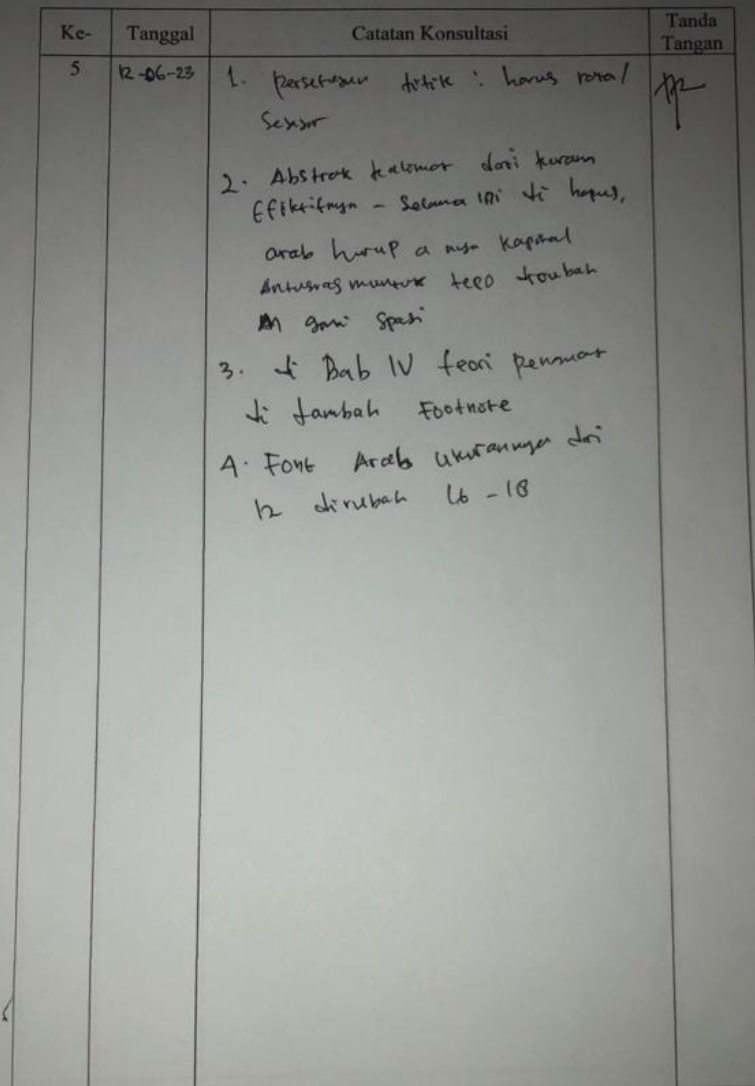 Ke- Tanggal Catatan Konsultasi Tanda Tangan
5 12-06-23 1. Persetujuan titik : harus
2. Abstrak kalimat dari kurang
Efiktifnya - Selama ini di hapus,
arab hurup a nya Kapital
spasi
3. di Bab IV teori penguat
di tambah Footnote
4. Font Arab Ukurannya dri
12 dirubah 16 - 18